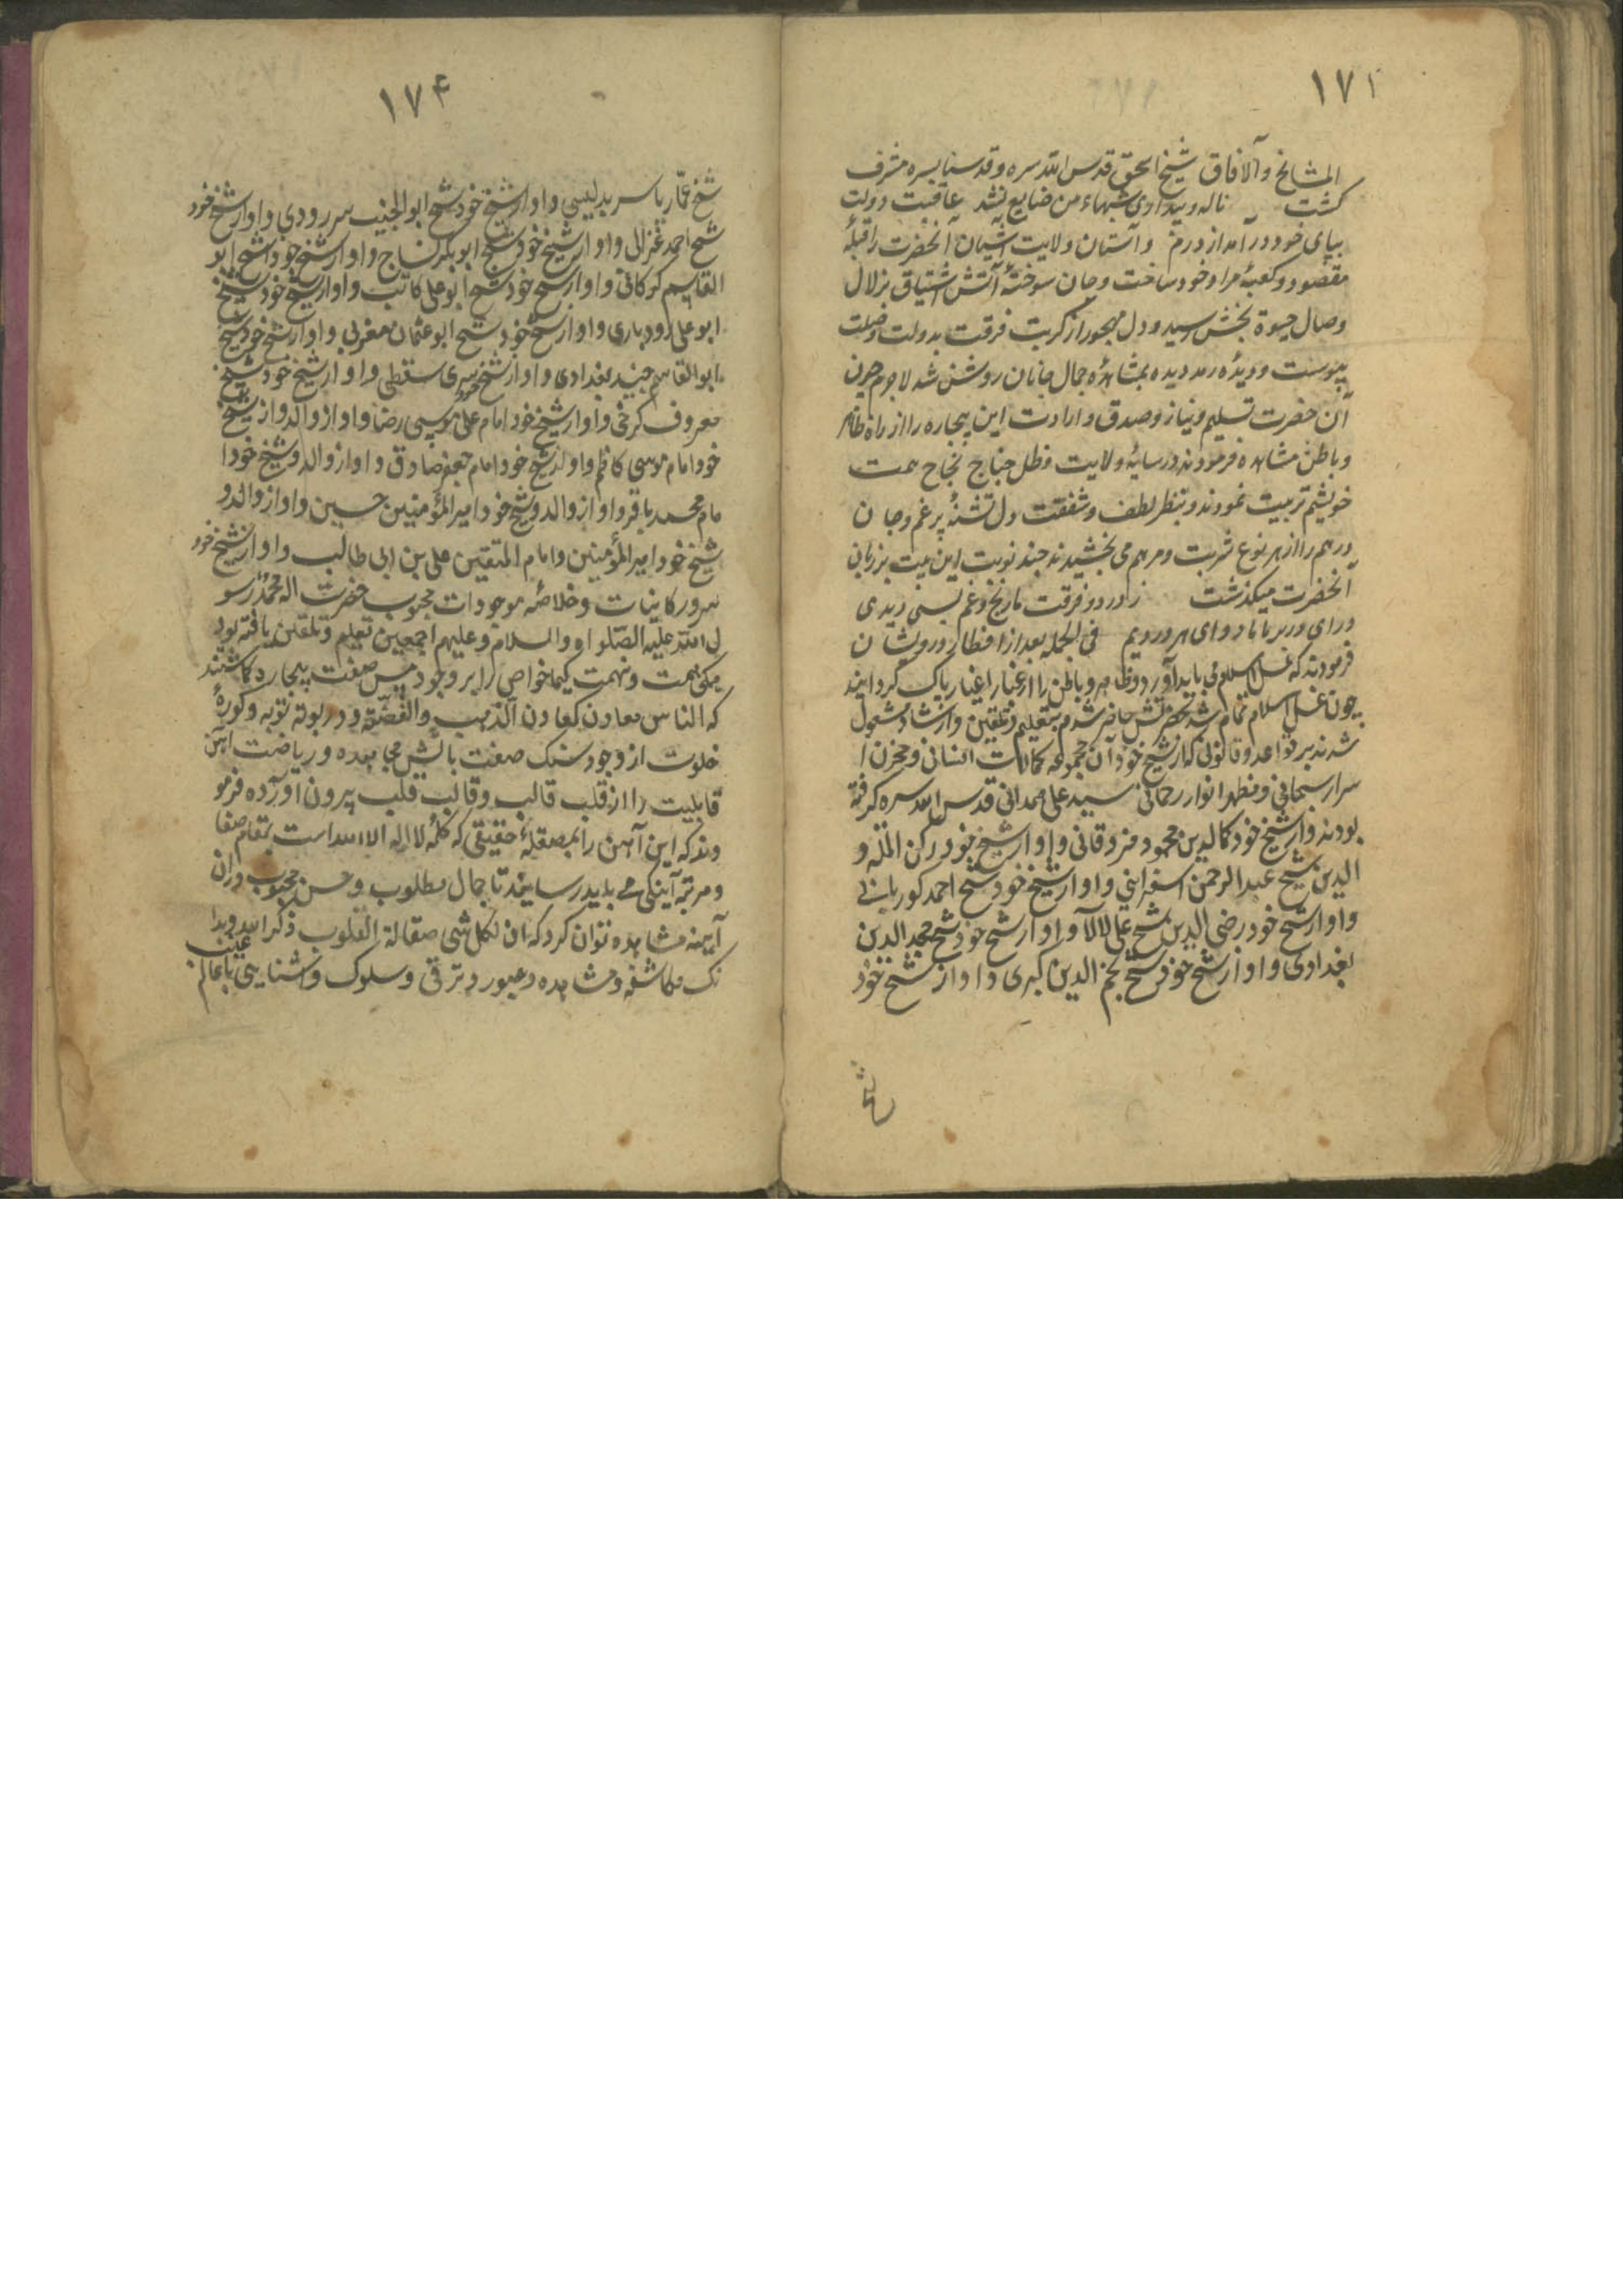 ١٧٢
المشایخ والآفاق شیخ الحق قدس الله سره و قدسنا بسره مشرف
گشت ناله و بیداری شبهاء من ضایع نشد عاقبت دولت
بپای خود در آمد از درم و آستان ولایت آشیان آنحضرت را قبلهٔ
مقصود و کعبهٔ مراد خود ساخت و جان سوختهٔ آتش اشتیاق بزلال
وصال حیوة بخش رسید و دل مهجور از کربت فرقت بدولت وصلت
پیوست و دیدهٔ رمد دیده بمشاهدهٔ جمال جانان روشن شد لاجرم چون
آن حضرت تسلیم و نیاز و صدق و ارادت این بیچاره را از راه ظاهر
و باطن مشاهده فرمودند در سایهٔ ولایت و ظل جناح نجاح همت
خویشم تربیت نمودند و بنظر لطف و شفقت دل تشنهٔ پر غم و جان
درهم را از هر نوع شربت و مرهم می بخشیدند چند نوبت این بیت بر زبان
آنحضرت میگذشت ز درد و فرقت ما رنج و غم بسی دیدی
درای در بر ما ما دوای هر دردیم فی الجمله بعد از افطار درویشان
فرمودند که غسل اسلام می باید آورد و ظاهر و باطن را از غبار اغیار پاک گردانید
چون غسل اسلام تمام شد بحضرتش حاضر شدم بتعلیم و تلقین و ارشاد مشغول
شدند بر قواعد و قانونی که از شیخ خود آن مجموعه کمالات انسانی و مخزن ا
سرار سبحانی و مظهر انوار رحمانی سید علی همدانی قدس الله سره گرفته
بودند و از شیخ خود کمال الدین محمود مزدقانی و او از شیخ خود رکن المله و
الدین شیخ عبدالرحمن اسفراینی و او از شیخ خود شیخ احمد کوربانی
و او از شیخ خود رضی الدین شیخ علی لالا و او از شیخ خود شیخ مجد الدین
بغدادی و او از شیخ خود شیخ نجم الدین کبری و او از شیخ خود
شیخ
١٧۴
شیخ عمّار یاسر بدلیسی و او از شیخ خود شیخ ابو النجیب سهروردی و او از شیخ خود
شیخ احمد غزالی و او از شیخ خود شیخ ابوبکر نساج و او از شیخ خود شیخ ابو
القاسم کرکانی و او از شیخ خود شیخ ابوعلی کاتب و او از شیخ خود شیخ
ابو علی رودباری و او از شیخ خود شیخ ابو عثمان مغربی و او از شیخ خود شیخ
ابوالقاسم جنید بغدادی و او از شیخ خود سری سقطی و او از شیخ خود شیخ
معروف کرخی و او از شیخ خود امام علی موسی رضا و او از والد و از شیخ
خود امام موسی کاظم و او از شیخ خود امام جعفر صادق و او از والد و شیخ خود ا
مام محمد باقر و او از والد و شیخ خود امیرالمؤمنین حسین و او از والد و
شیخ خود امیرالمؤمنین و امام المتقین علی بن ابی طالب و او از شیخ خود
سرور کاینات و خلاصهٔ موجودات محبوب حضرت اله محمد رسو
ل الله علیه الصلواة و السلام و علیهم اجمعین تعلیم و تلقین یافته بود
همگی همت و نهمت کیمیا خواص را بر وجود مس صفت بیچاره گماشتند
که الناس معادن کمعادن الذهب والفضّة و در بوتهٔ توبه و کورهٔ
خلوت از وجود سنگ صفت بآتش مجاهده و ریاضت آهن
قابلیت را از قلب قالب و قالب قلب بیرون آورده فرمو
دند که این آهن را بمصقلهٔ حقیقی که کلمهٔ لا اله الا الله است بمقام صفا
و مرتبهٔ آینگی می باید رسانید تا جمال مطلوب و حسن محبوب در ان
آیینه مشاهده توان کرد که ان لکل شی صقالة و صقالة القلوب ذکر الله و بدا
نک مکاشفه و مشاهده و عبور و ترقی و سلوک و آشنایی با عالم غیب